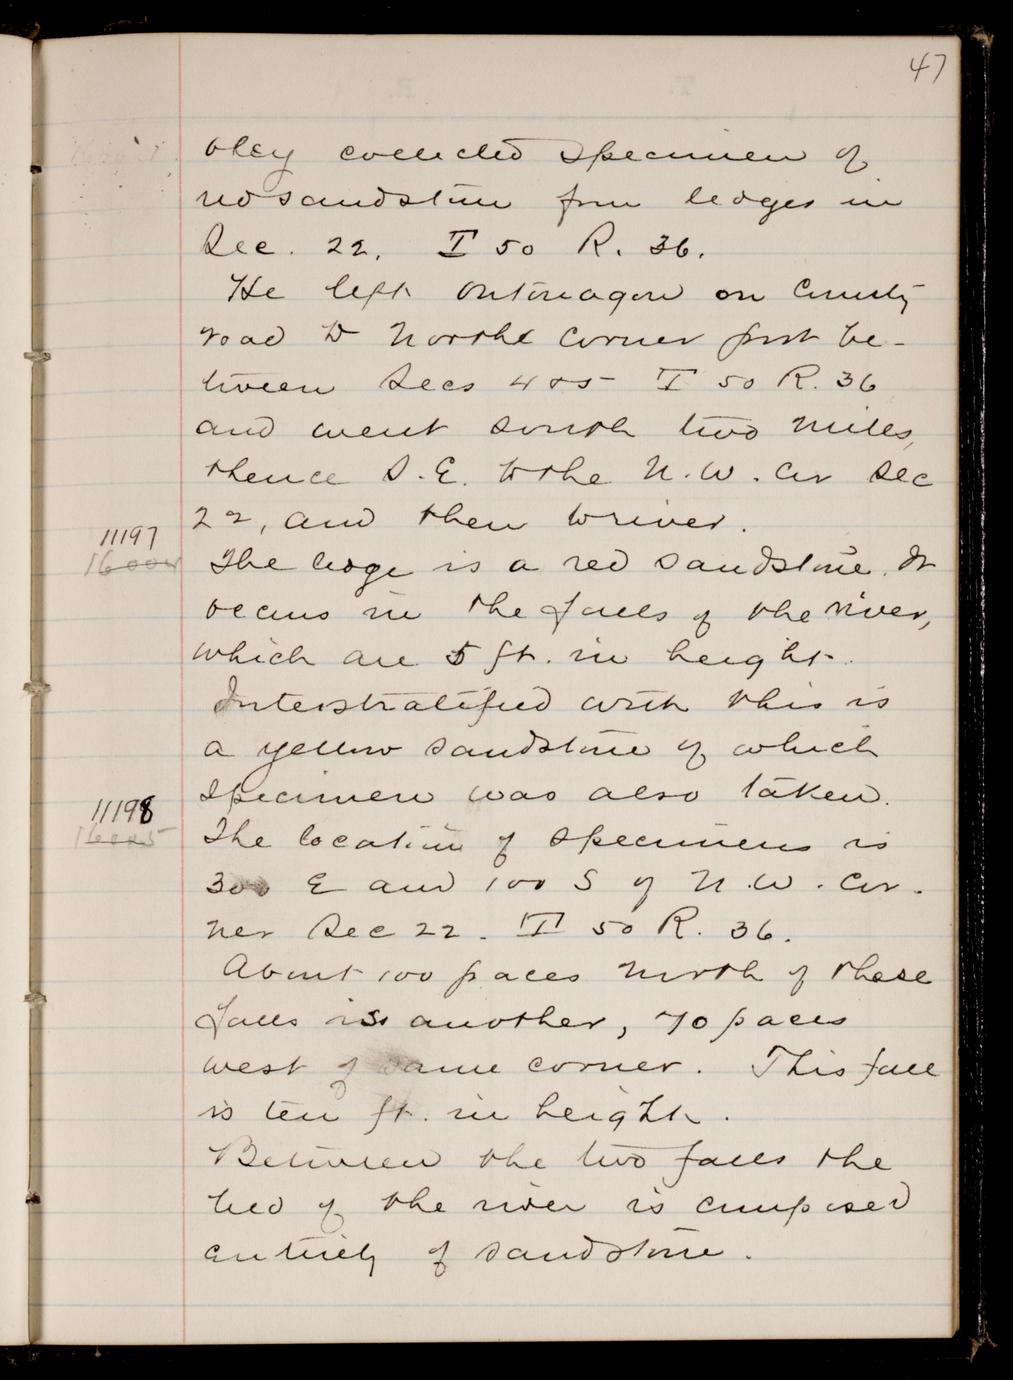 47
obey collected specimen of
red sandstone from ledges in
Sec. 22, T 50 R. 36.
He left Ontonagon on County
road to North corner post be-
tween Secs 4 & 5 T 50 R. 36
and went south two miles,
thence S. E. to the N. W. Cor Sec
22, and then to river.
11197
16004
The ledge is a red sandstone. It
occurs in the falls of the river,
which are 5 ft. in height.
Interstratified with this is
a yellow sandstone of which
specimen was also taken.
11198
16005
The location of specimens is
300 E and 100 S of N. W. Cor-
ner Sec 22. T 50 R. 36.
About 100 paces north of these
falls is another, 70 paces
west of same corner. This fall
is ten ft. in height.
Between the two falls the
bed of the river is composed
entirely of sandstone.